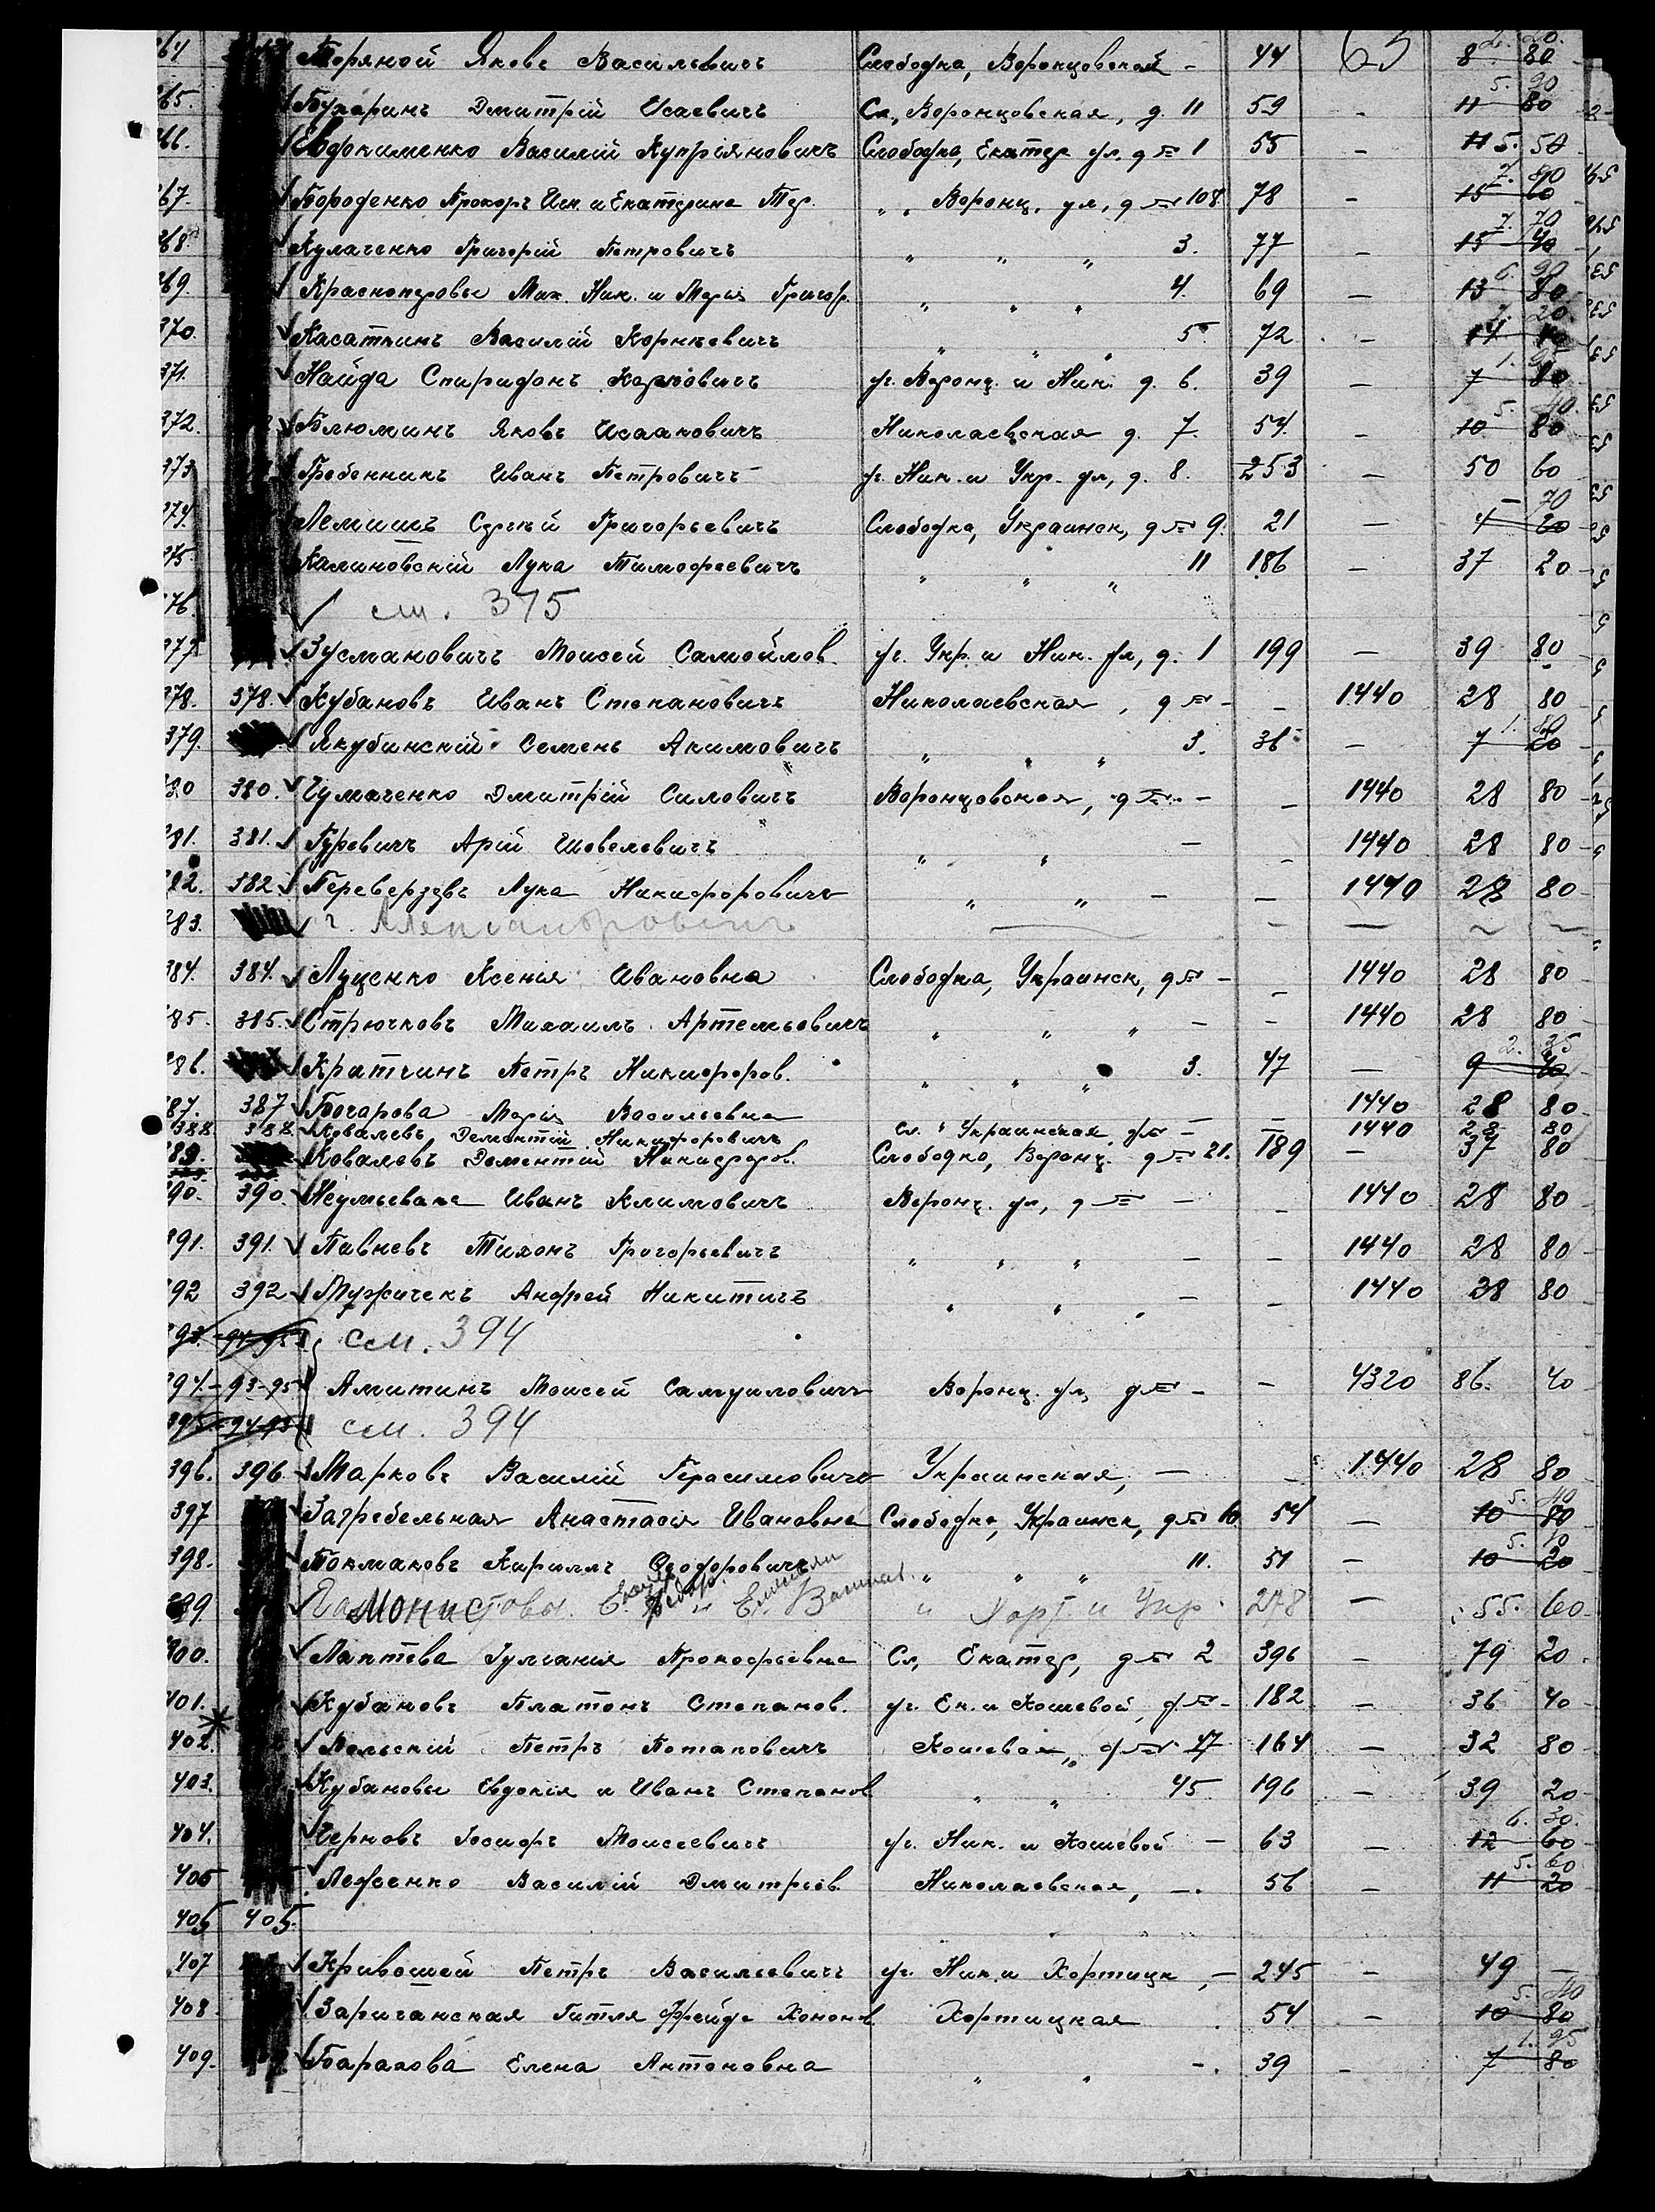 64 Моряной Яковъ Васильевичъ Слободка, Воронцовской - 44 65 8 80 2. 20.
365. Бухаринъ Дмитрій Исаевичъ Сл, Воронцовская, д. 11 59 - 11 80 5. 90
366. Евдокименко Василій Купріяновичъ Слободка, Екатер ул, д № 1 55 - 11 5. 50
367. Бороденко Прохоръ Иск. и Екатерина Тер. " " Воронц. ул, д № 108 78 - 15 60 7. 80
368. Кулаченко Григорій Петровичъ " " " 3. 77 15 40 7. 70
369. Красноперовы Мих. Ник. и Марія Григор. " " " 4. 69 - 13 80 6. 90
370. Касаткинъ Василій Корнѣевичъ " " " 5. 72 - 14 40 7. 20.
371. Найда Спиридонъ Карповичъ уг. Воронц. и Ник. д. 6. 39 - 7 80 1. 95
372. Блюминъ Яковъ Исааковичъ Николаевская д. 7. 54 - 10 80 5. 40.
373 Гребенникъ Иванъ Петровичъ уг. Ник. и Укр. ул, д. 8. 253 - 50 60
374. Лемишъ Сергѣй Григорьевичъ Слободка, Украинск, д № 9. 21 - 4 20 - 70
375. Калиновскій Лука Тимофеевичъ " " " 11 186 - 37 20
376. см. 375
377 Зусмановичъ Моисей Самойлов. уг. Укр. и Ник. ул, д. 1 199 - 39 80
378. 378. Кубановъ Иванъ Степановичъ Николаевская, д № - - 1440 28 80
379. Якубинскій Семенъ Акимовичъ " " " 3. 36 - 7 20 1. 80
380 380. Чумаченко Дмитрій Силовичъ Воронцовская, д № - - 1440 28 80
381. 381. Гуревичъ Арій Шовелевичъ " " - - 1440 28 80
382. 382 Переверзевъ Лука Никифоровичъ " " - - 1440 28 80
383. г. Александровскъ - - - - -
384. 384. Луценко Ксенія Ивановна Слободка, Украинск, д № - - 1440 28 80
385. 385. Стрючковъ Михаилъ Артемьевичъ " " " - - 1440 28 80
386. Краткинъ Петръ Никифоров. " " " 3. 47 - 9 40 2. 35
387. 387 Бочарова Марія Васильевна - - 1440 28 80
388. 388. Ковалевъ Дементій Никифоровичъ Сл. " Украинская д № - - 1440 28 80
389. Ковалевъ Дементій Никифоров. Слободка, Воронц. д № 21. 189 - 37 80
390. 390. Неумывака Иванъ Климовичъ Воронц. ул, д № - - 1440 28 80
391. 391. Павневъ Тихонъ Григорьевичъ " " " - - 1440 28 80
392 392 Мужичекъ Андрей Никитичъ " " " - - 1440 28 80
393. 94-95 см. 394
394. - 93-95 Амитинъ Моисей Самуиловичъ Воронц. ул, д № - - 4320 86. 40
395 94-93 см. 394
396. 396 Марковъ Василій Герасимовичъ Украинская, - - 1440 28 80
397 Загребельная Анастасія Ивановна Слободка, Украинск, д № 10. 54 - 10 80 5. 40
398. Токмаковъ Кириллъ Ѳеодоровичъ " " " 11. 51 - 10 20 5. 10
399. Памонистовы. Екат. Ѳедор. и Емельян Васильев. " Хорт. и Укр. 278 - 55. 60
400. Лаптева Гулианія Прокофьевна Сл, Екатер, д № 2 396 - 79 20
401. Кубановъ Платонъ Степанов. уг. Ек. и Кошевой, д № - 182 - 36 40
402. Вольскій Петръ Потаповичъ Кошевая, д № 47 164 - 32 80
403. Кубановы Евдокія и Иванъ Степанов " " 45 196 - 39 20
404. Черновъ Іосифъ Моисеевичъ уг. Ник. и Кошевой - 63 - 12 60 6. 30.
405 Леженко Василій Дмитріев. Николаевская, - 56 - 11 20 5. 60
405 405.
407 Кривошей Петръ Васильевичъ уг. Ник. и Хортицк, - 245 - 49 -
408. Заричанская Гитля Фрейда Хононов Хортицкая 54 - 10 80 5. 40
409. Барахова Елена Антоновна " " -. 39 - 7 80 1. 95